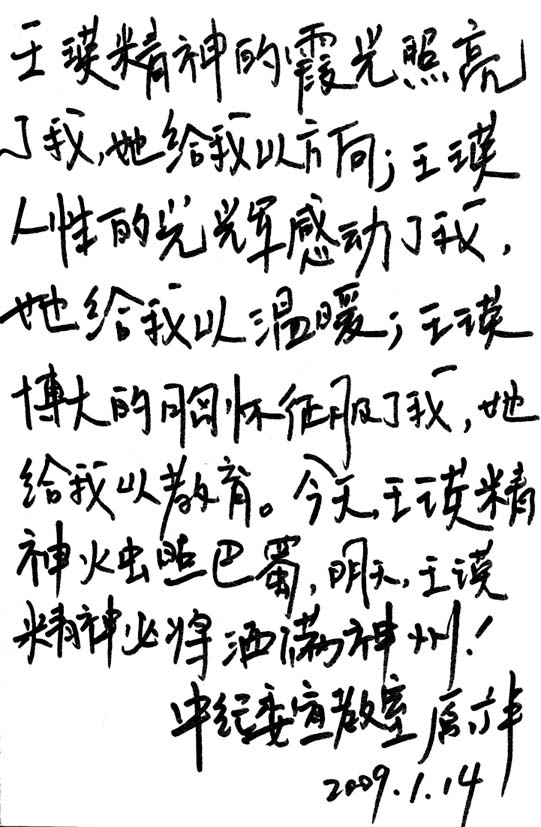 王瑛精神的霞光照亮
了我,她给我以方向;王瑛
人性的光辉感动了我,
她给我以温暖;王瑛
博大的胸怀征服了我,她
给我以教育。今天,王瑛精
神火虫照巴蜀,明天,王瑛
精神必将洒满神州!
中纪委宣教室
2009.1.14